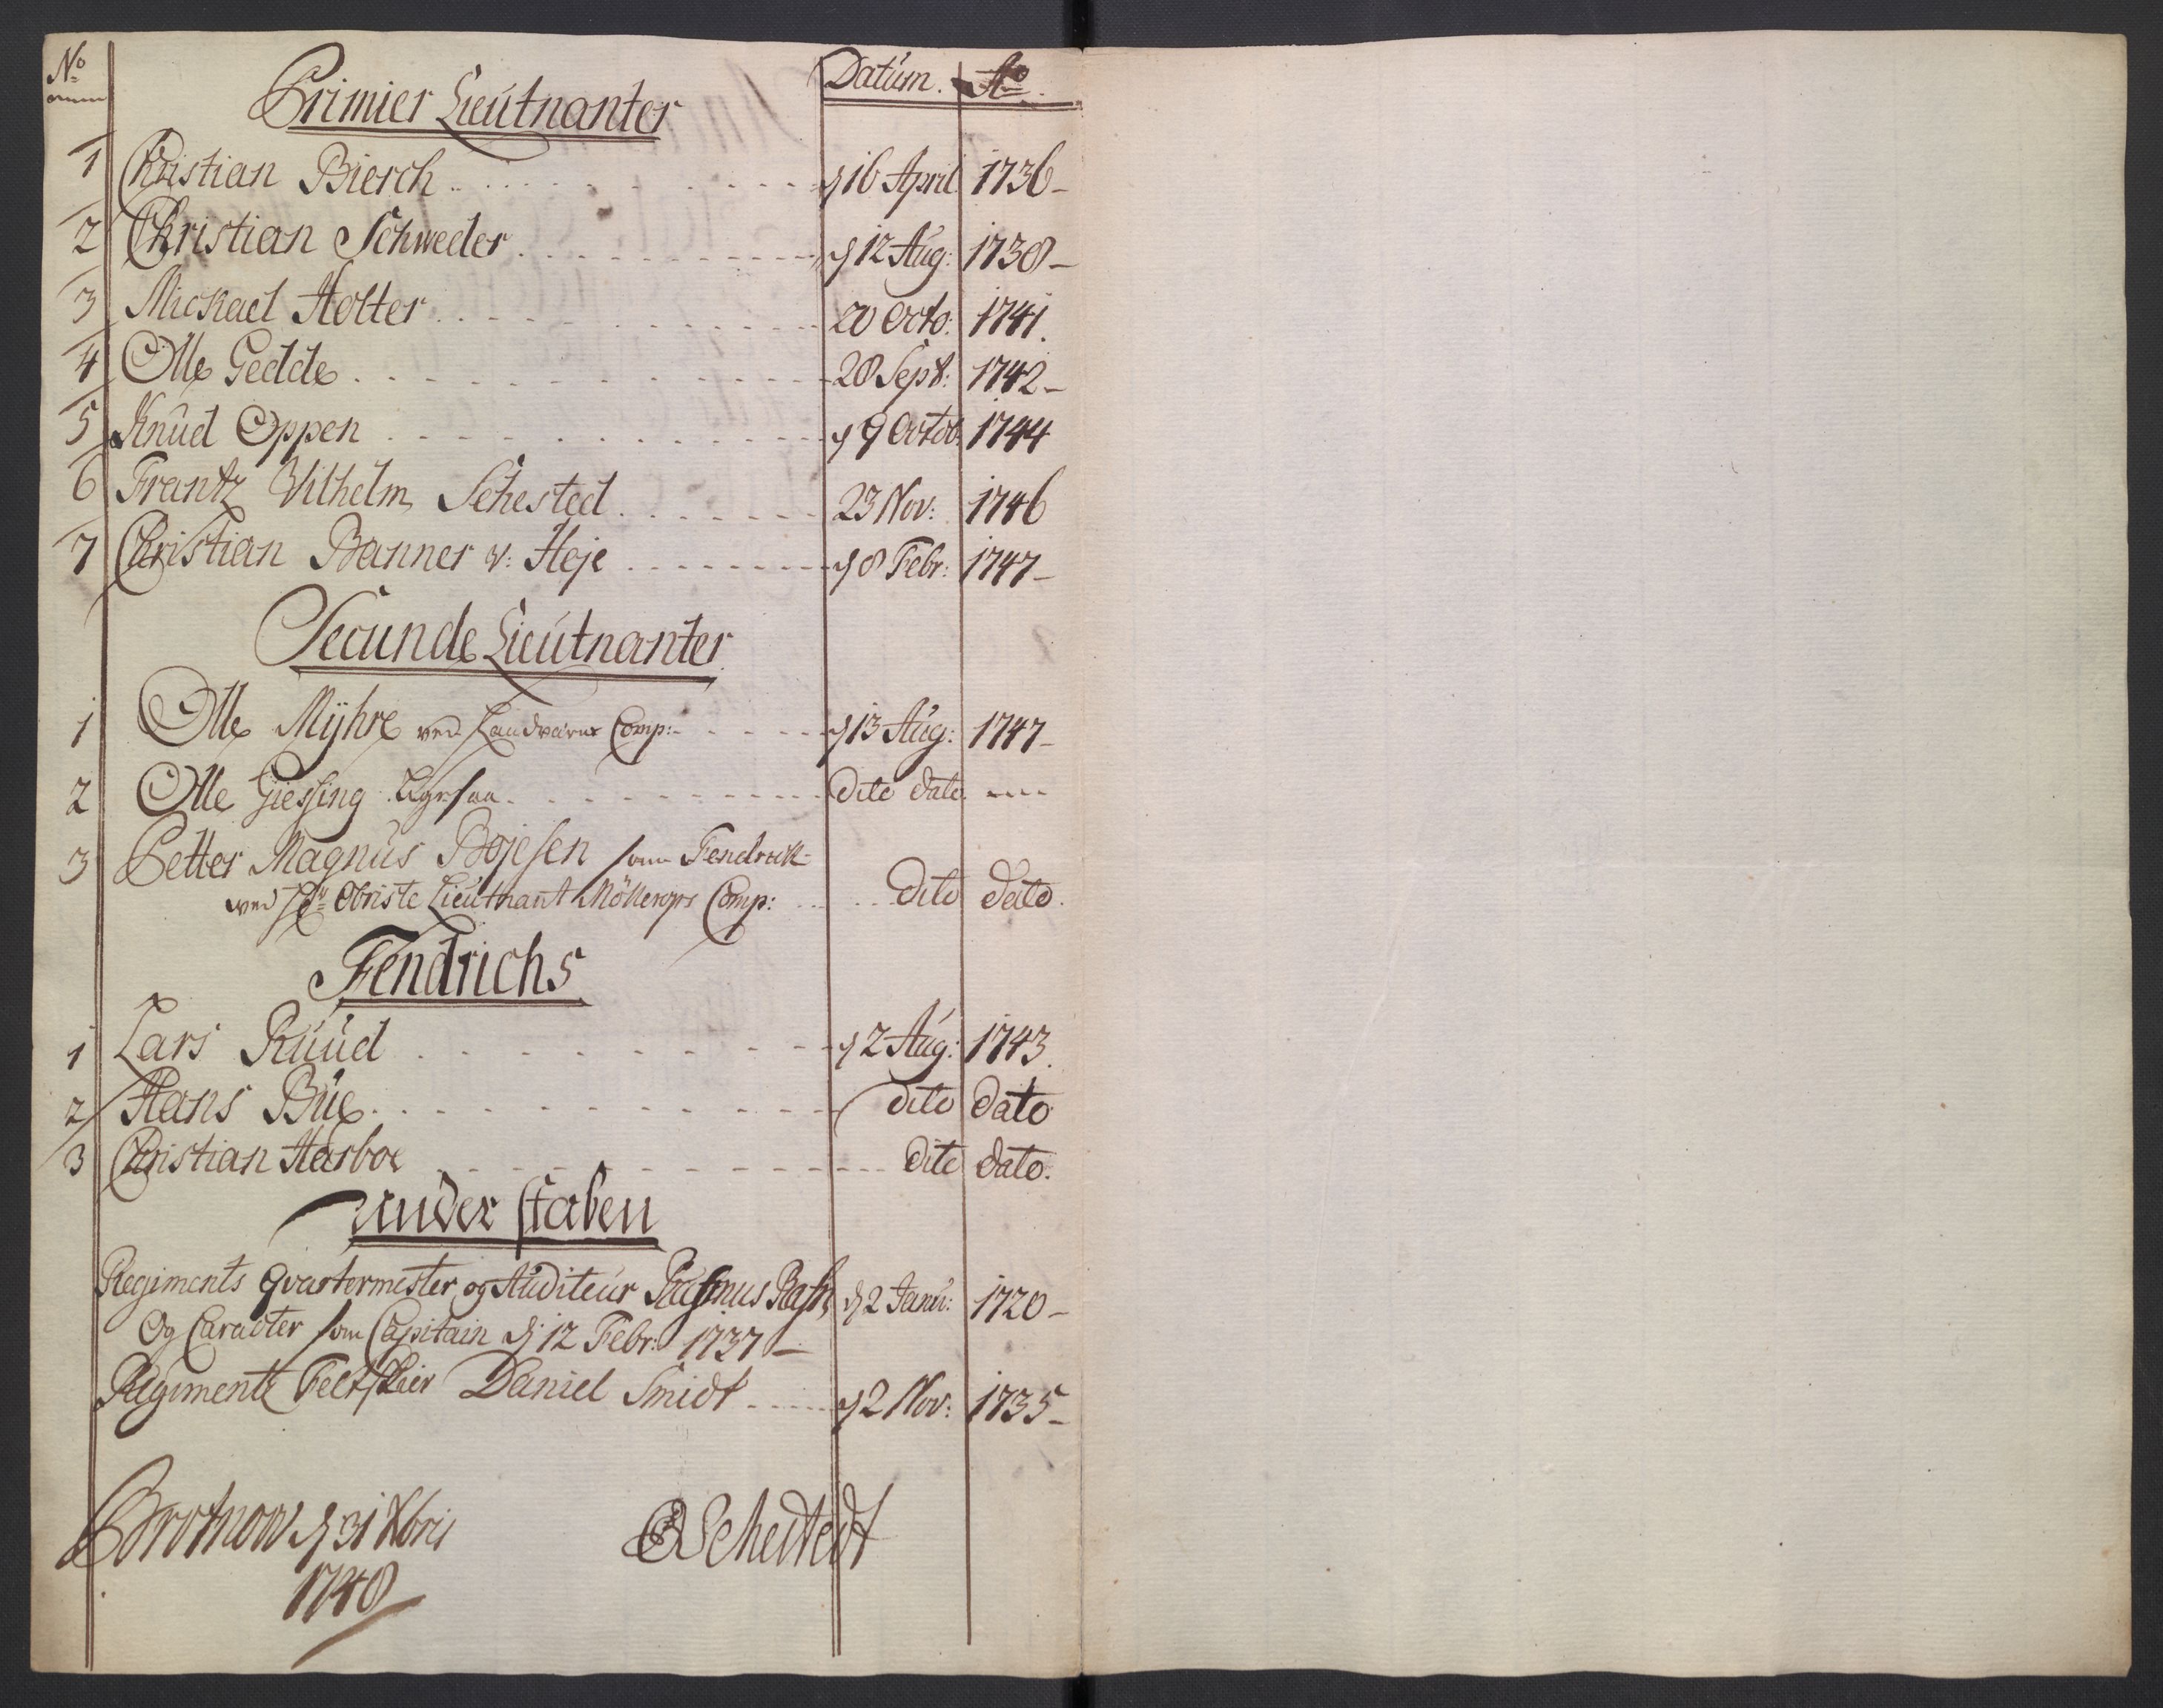 No Datum. Ao
Primier Lieutnanter
1 Christian Bierch d 16 April 1736
2 Christian Schweder d 12 Aug: 1738
3 Mickael Holter 20 Octo: 1741.
4 Olle Gedde 28 Sept: 1742
5 Knud Oppen d 9 Octob: 1744
6 Frantz Vilhelm Sehested 23 Nov: 1746
7 Christian Banner v: Heje d 8 Febr: 1747
Secunde Lieutnanter
1 Olle Mÿhre ved Landværns Comp: d 13 Aug: 1747
2 Olle Giessing Ligesaa dito dato
3 Petter Magnus Bojesen som Fendrick
ved Hr Obriste Lieutnant Comp: dito dato.
Fendrichs
1 Lars Ruud d 2 Aug: 1743.
2 Hans Bue dito dato
3 Christian Harboe dito dato.
Under staben
Regiments Qvartermester og Auditeur Rasmus Rasch d 2 Janu: 1720
Og Caracter som Capitain d. 12 Febr: 1737
Regiments Feltskier Daniel Smidt d 2 Nov: 1735
d 31 Xbris
1748